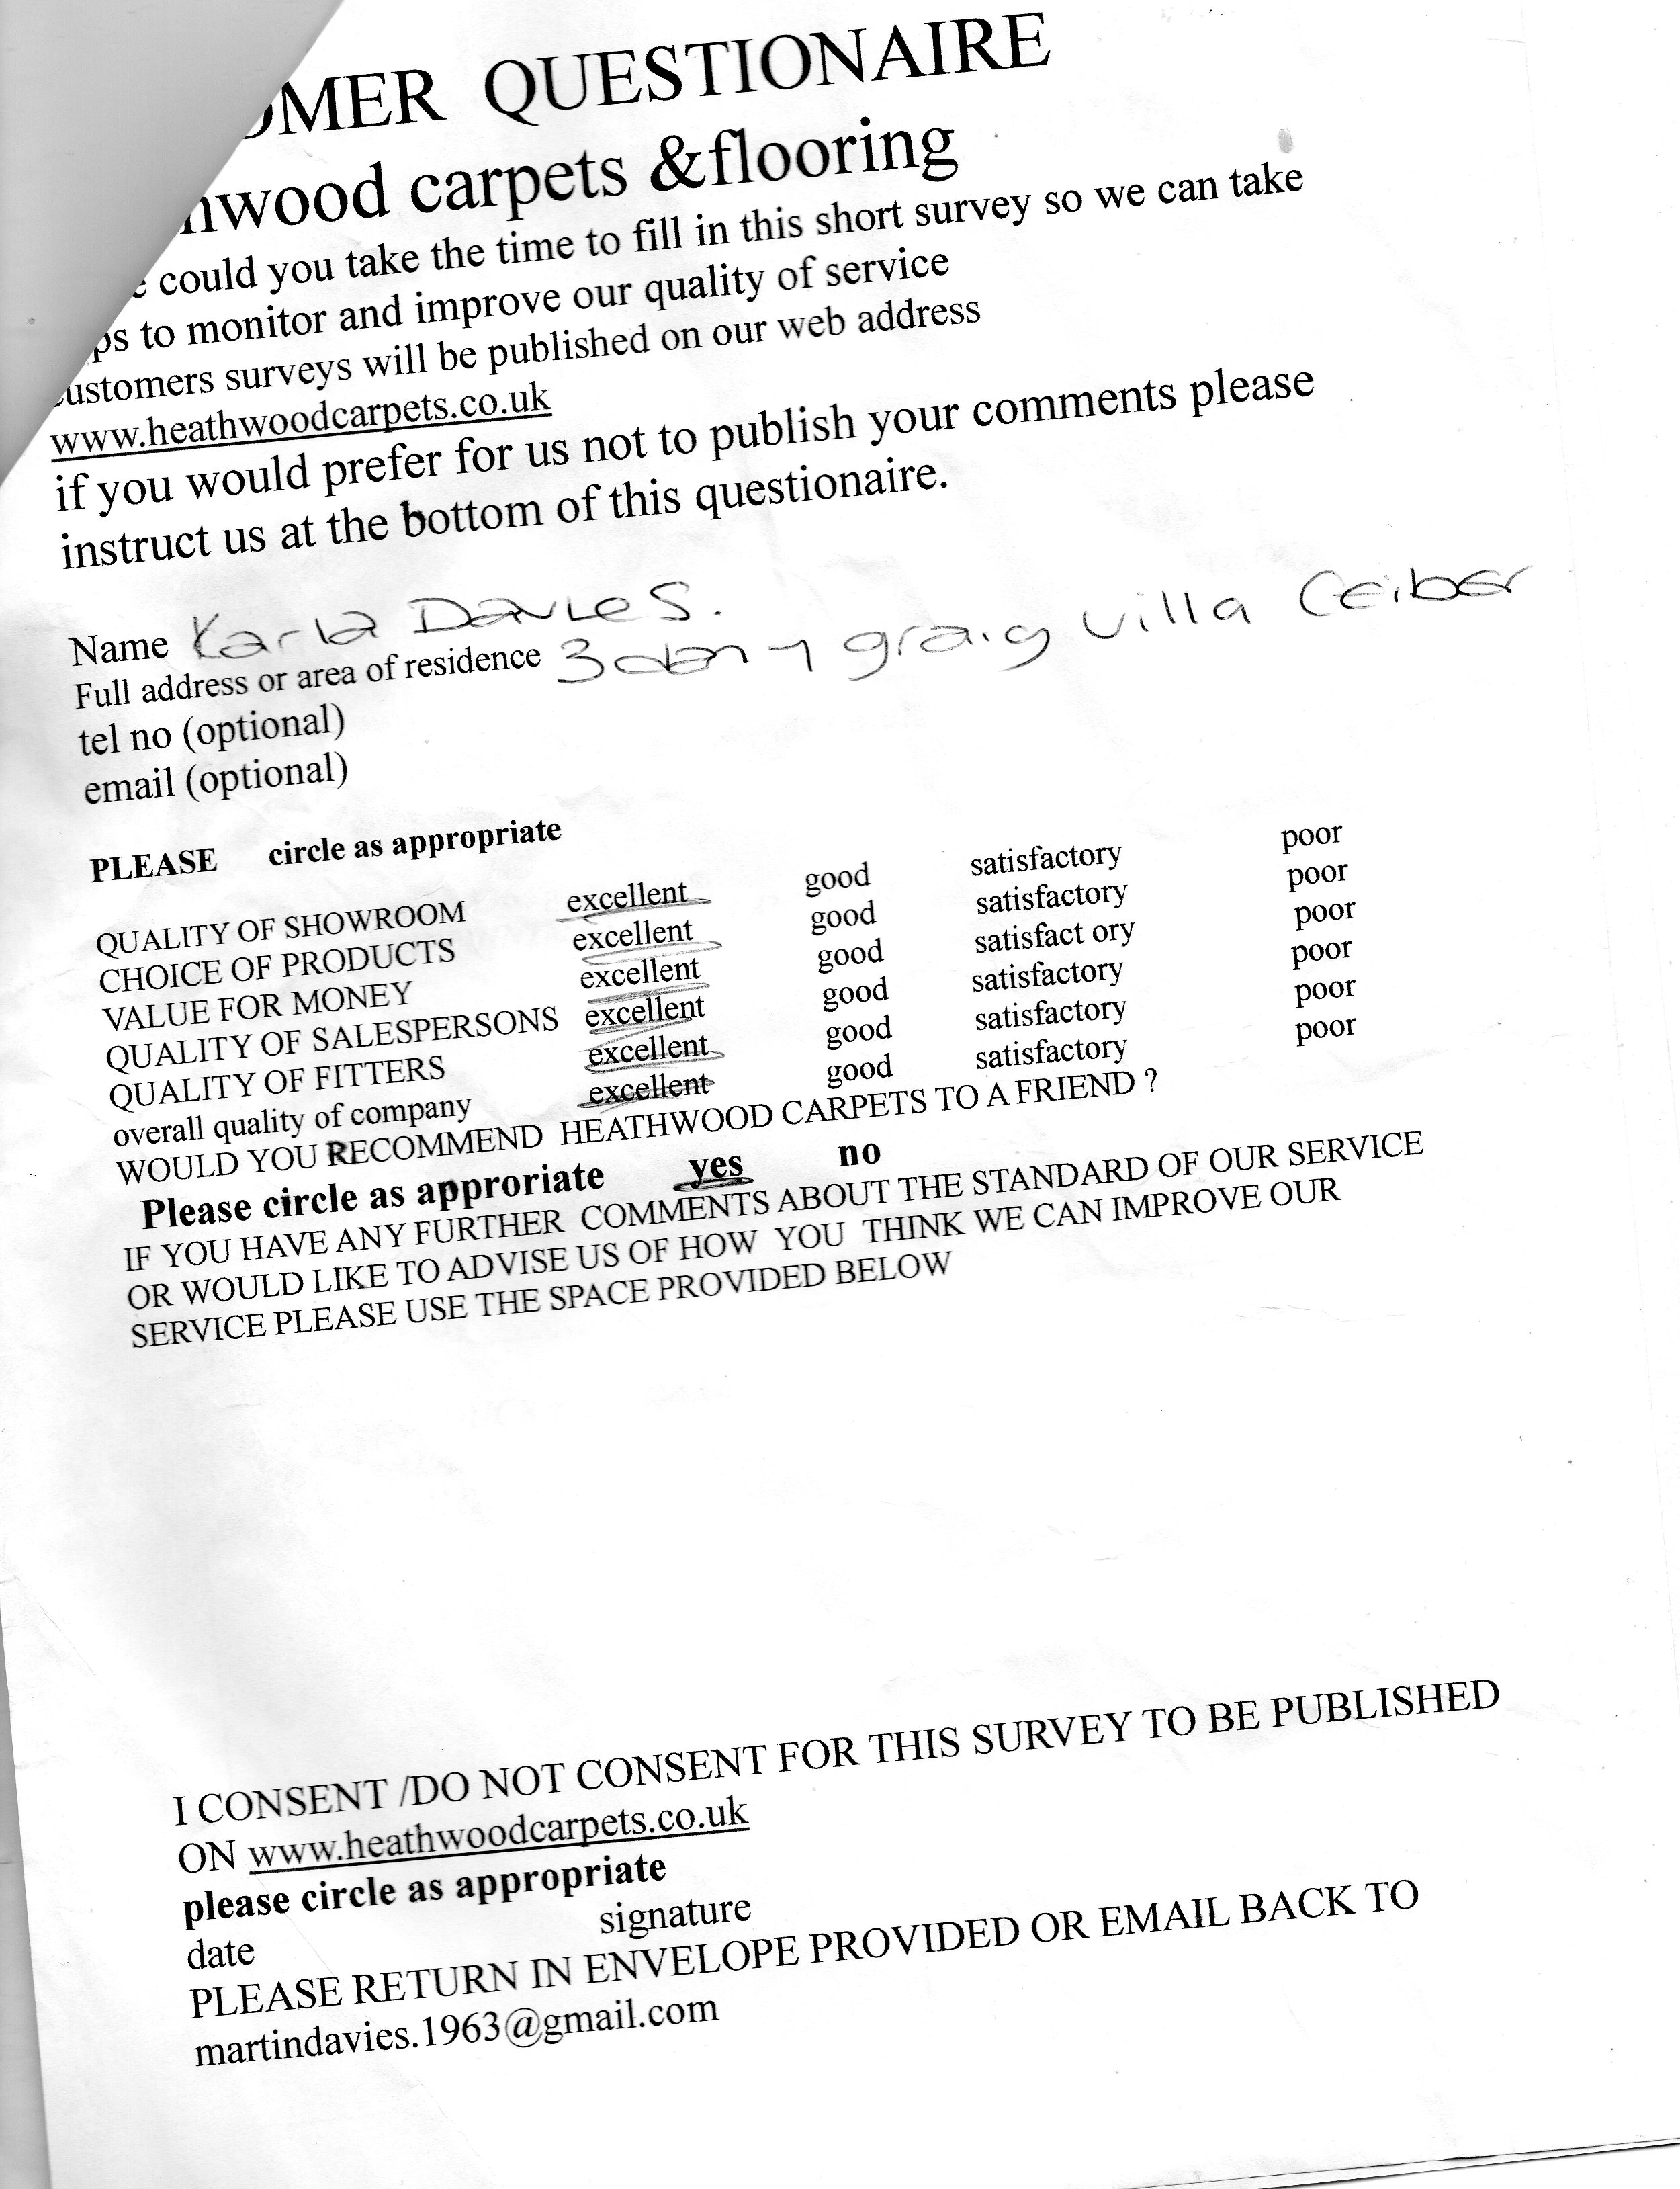 OMER QUESTIONAIRE
hwood carpets &flooring
could you take the time to fill in this short survey so we can take
ps to monitor and improve our quality of service
customers surveys will be published on our web address
www.heathwoodcarpets.co.uk
if you would prefer for us not to publish your comments please
instruct us at the bottom of this questionaire.
Name Karla Davies.
Full address or area of residence 3 dan y graig villa
tel no (optional)
email (optional)
PLEASE circle as appropriate
QUALITY OF SHOWROOM excellent good satisfactory poor
CHOICE OF PRODUCTS excellent good satisfactory poor
VALUE FOR MONEY excellent good satisfact ory poor
QUALITY OF SALESPERSONS excellent good satisfactory poor
QUALITY OF FITTERS excellent good satisfactory poor
overall quality of company excellent good satisfactory poor
WOULD YOU RECOMMEND HEATHWOOD CARPETS TO A FRIEND ?
Please circle as approriate yes no
IF YOU HAVE ANY FURTHER COMMENTS ABOUT THE STANDARD OF OUR SERVICE
OR WOULD LIKE TO ADVISE US OF HOW YOU THINK WE CAN IMPROVE OUR
SERVICE PLEASE USE THE SPACE PROVIDED BELOW
I CONSENT /DO NOT CONSENT FOR THIS SURVEY TO BE PUBLISHED
ON www.heathwoodcarpets.co.uk
please circle as appropriate
date signature
PLEASE RETURN IN ENVELOPE PROVIDED OR EMAIL BACK TO
martindavies.1963@gmail.com